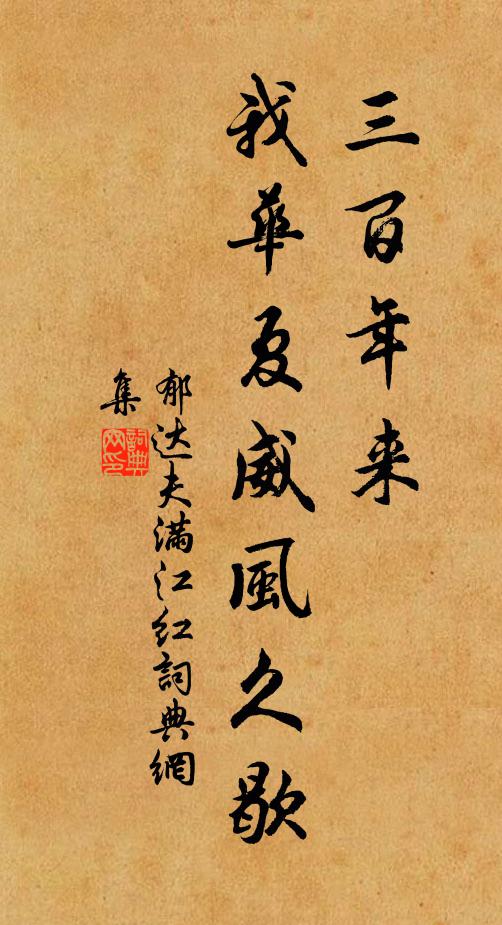 三百年来
我華夏威風久歇
郁达夫满江红詞典網
集
詞典網印